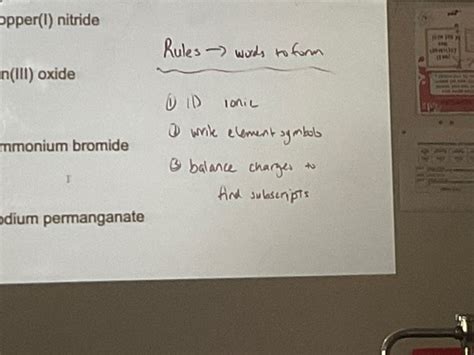 opper(I) nitride
Rules → words to form
n(III) oxide
① ID ionic
② write element symbols
mmonium bromide
③ balance charges to
find subscripts
odium permanganate